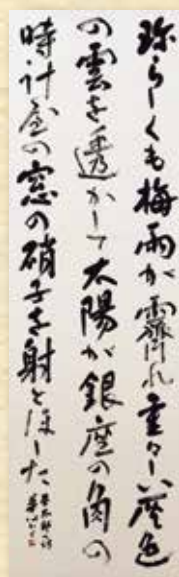 珍らしくも梅雨が霽れ重々しい灰色
の雲を透かして太陽が銀座の角の
時計屋の窓の硝子を射とほした